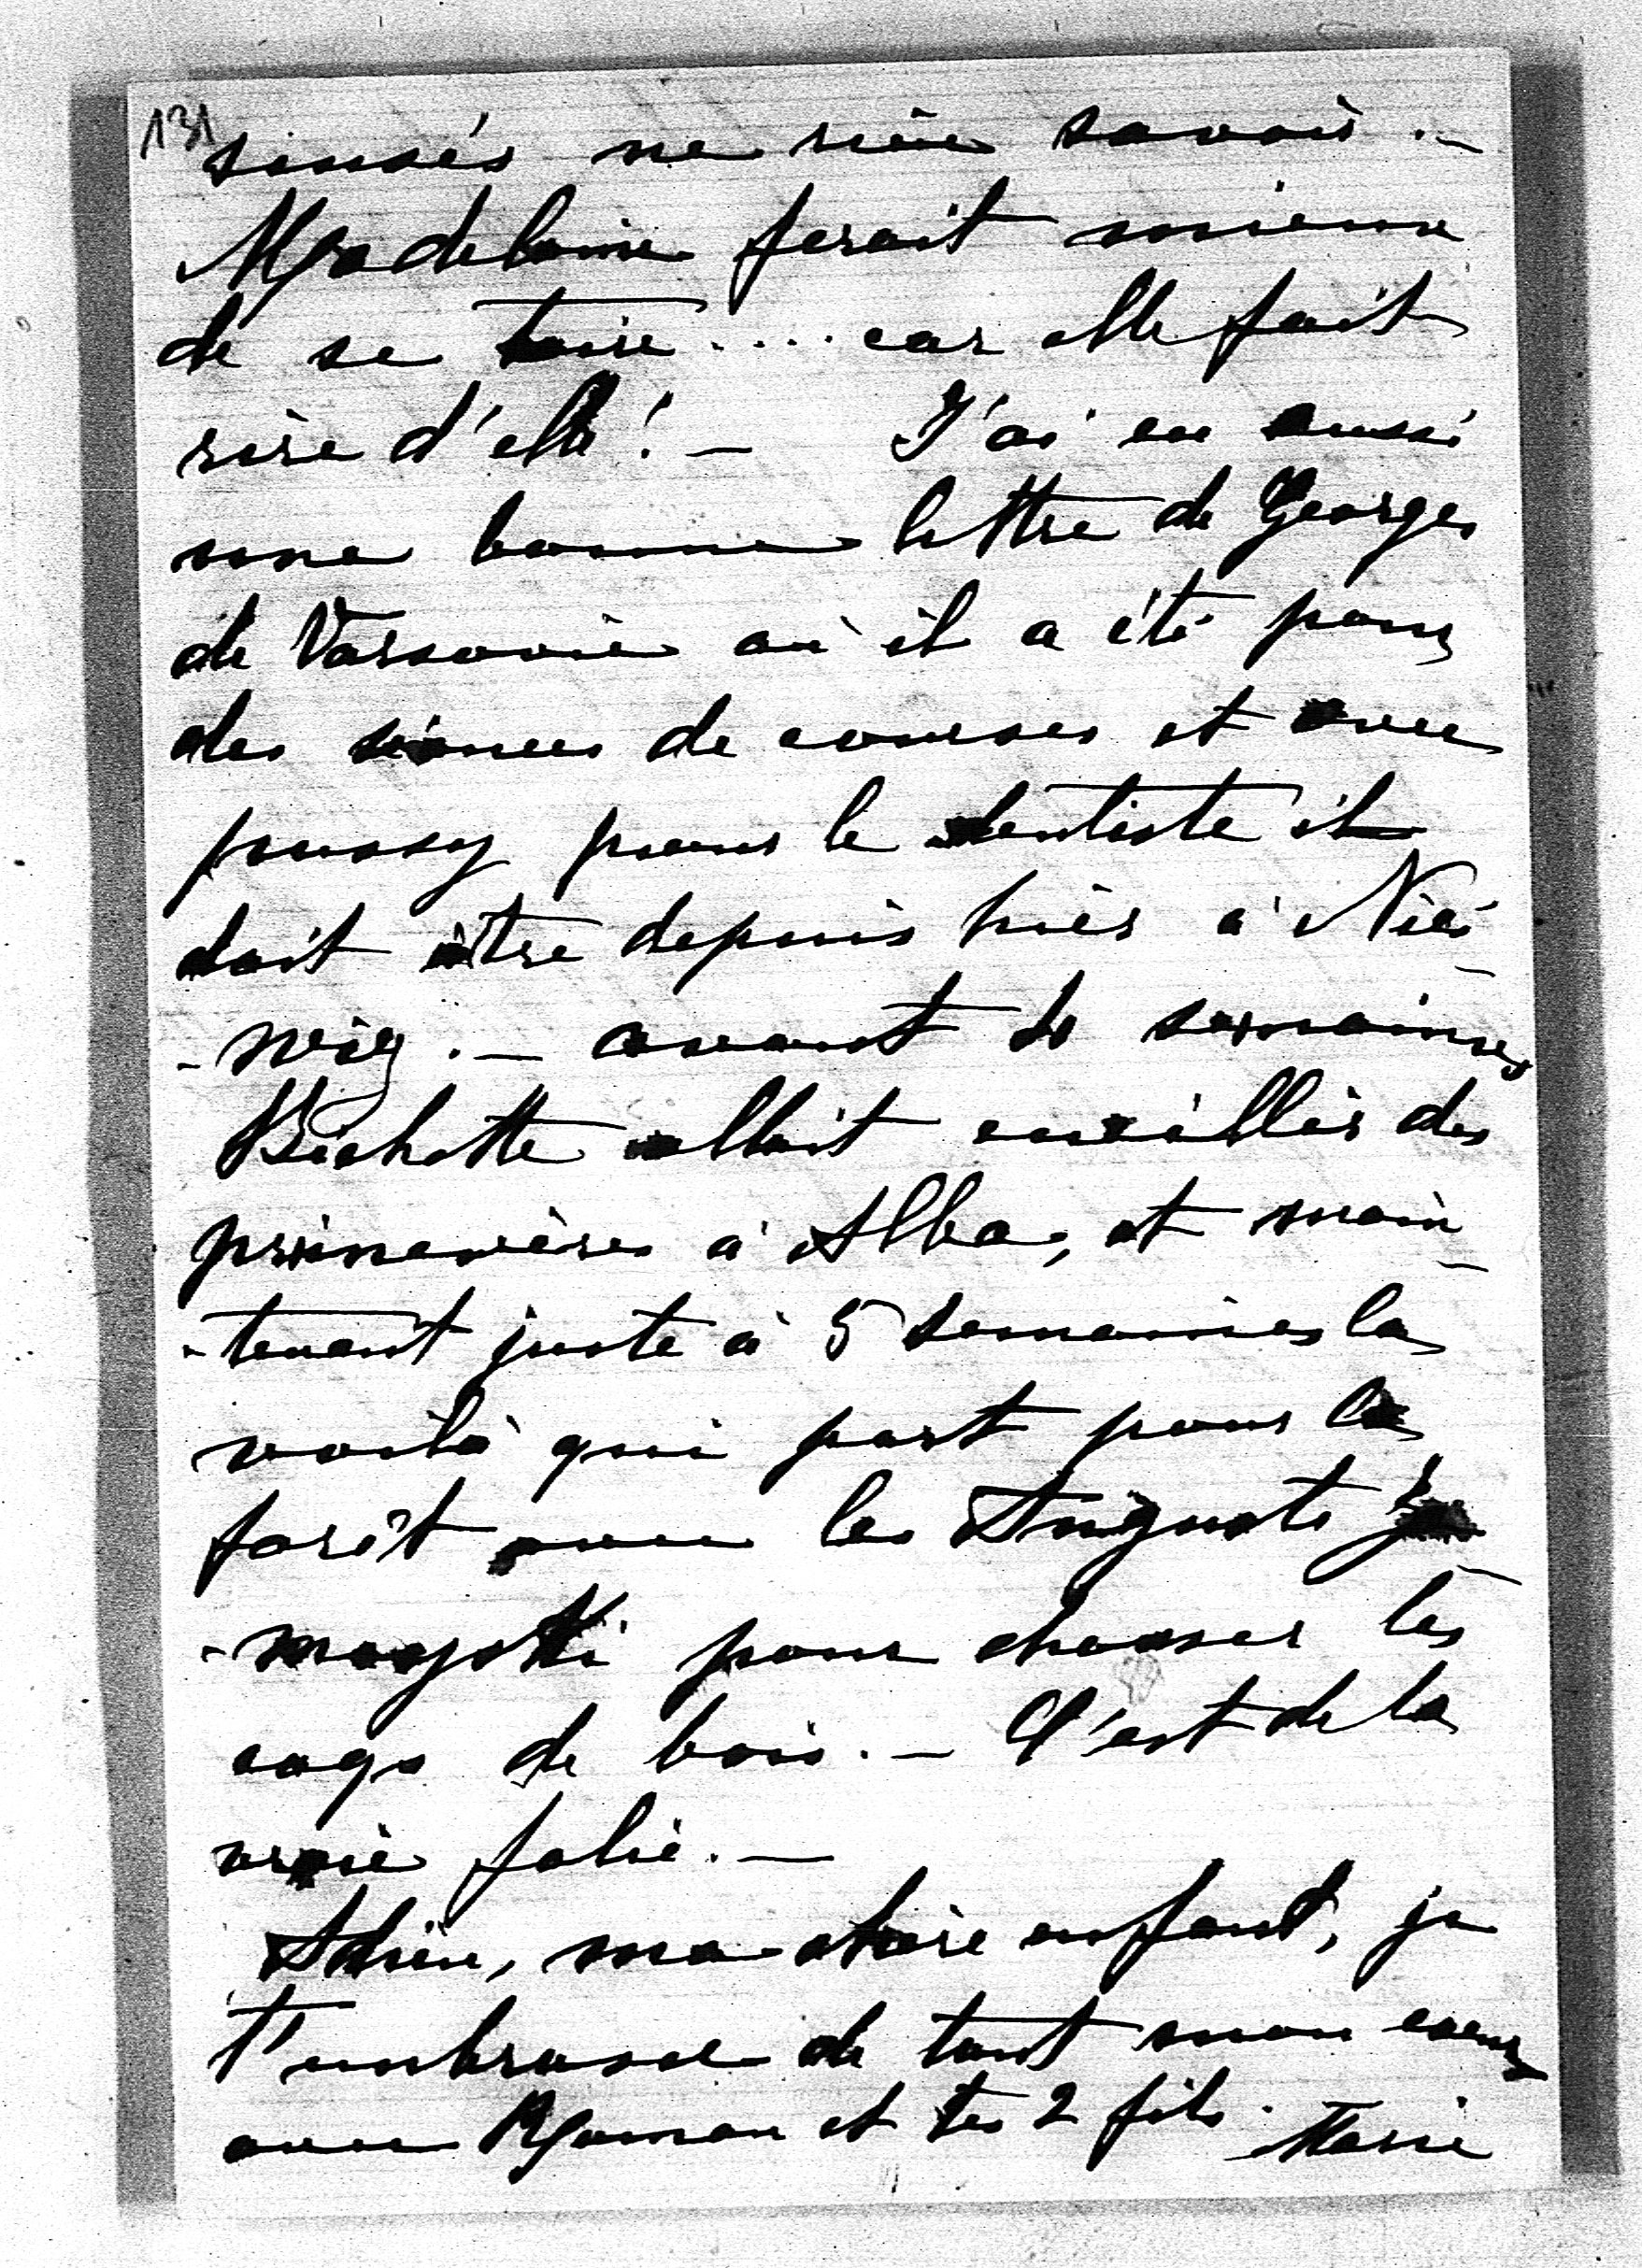 131
sensés ne rien savoir. —
Madeleine ferait mieux
de se taire.... car elle fait
rire d'elle! — J'ai eu aussi
une bonne lettre de Georges
de Varsovie où il a été pour
des séances de courses et avec
poussy pour le dentiste il
doit être depuis hier à Nies-
-wiez. — avant 4 semaines
Bichette allait cueillir des
primevères à Alba, et main-
-tenant juste à 5 semaines la
voilà qui part pour la
forêt avec les August
pour chasser les
coqs de bois. — C'est de la
vraie folie. —
Adieu, ma chère enfant, je
t'embrasse de tout mon coeur
avec Roman et tes 2 fils. Marie